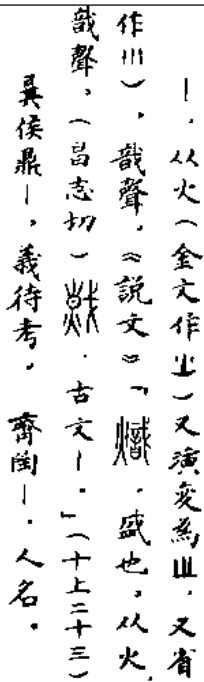 ｜，从火（金文作㞢）又演变為山，又省
作川），哉聲，《説文》「熾，盛也，从火，
哉聲，（昌志切）𢧤，古文｜。」（十上二十三）
㠱侯鼎｜，義待考。齊陶｜，人名。